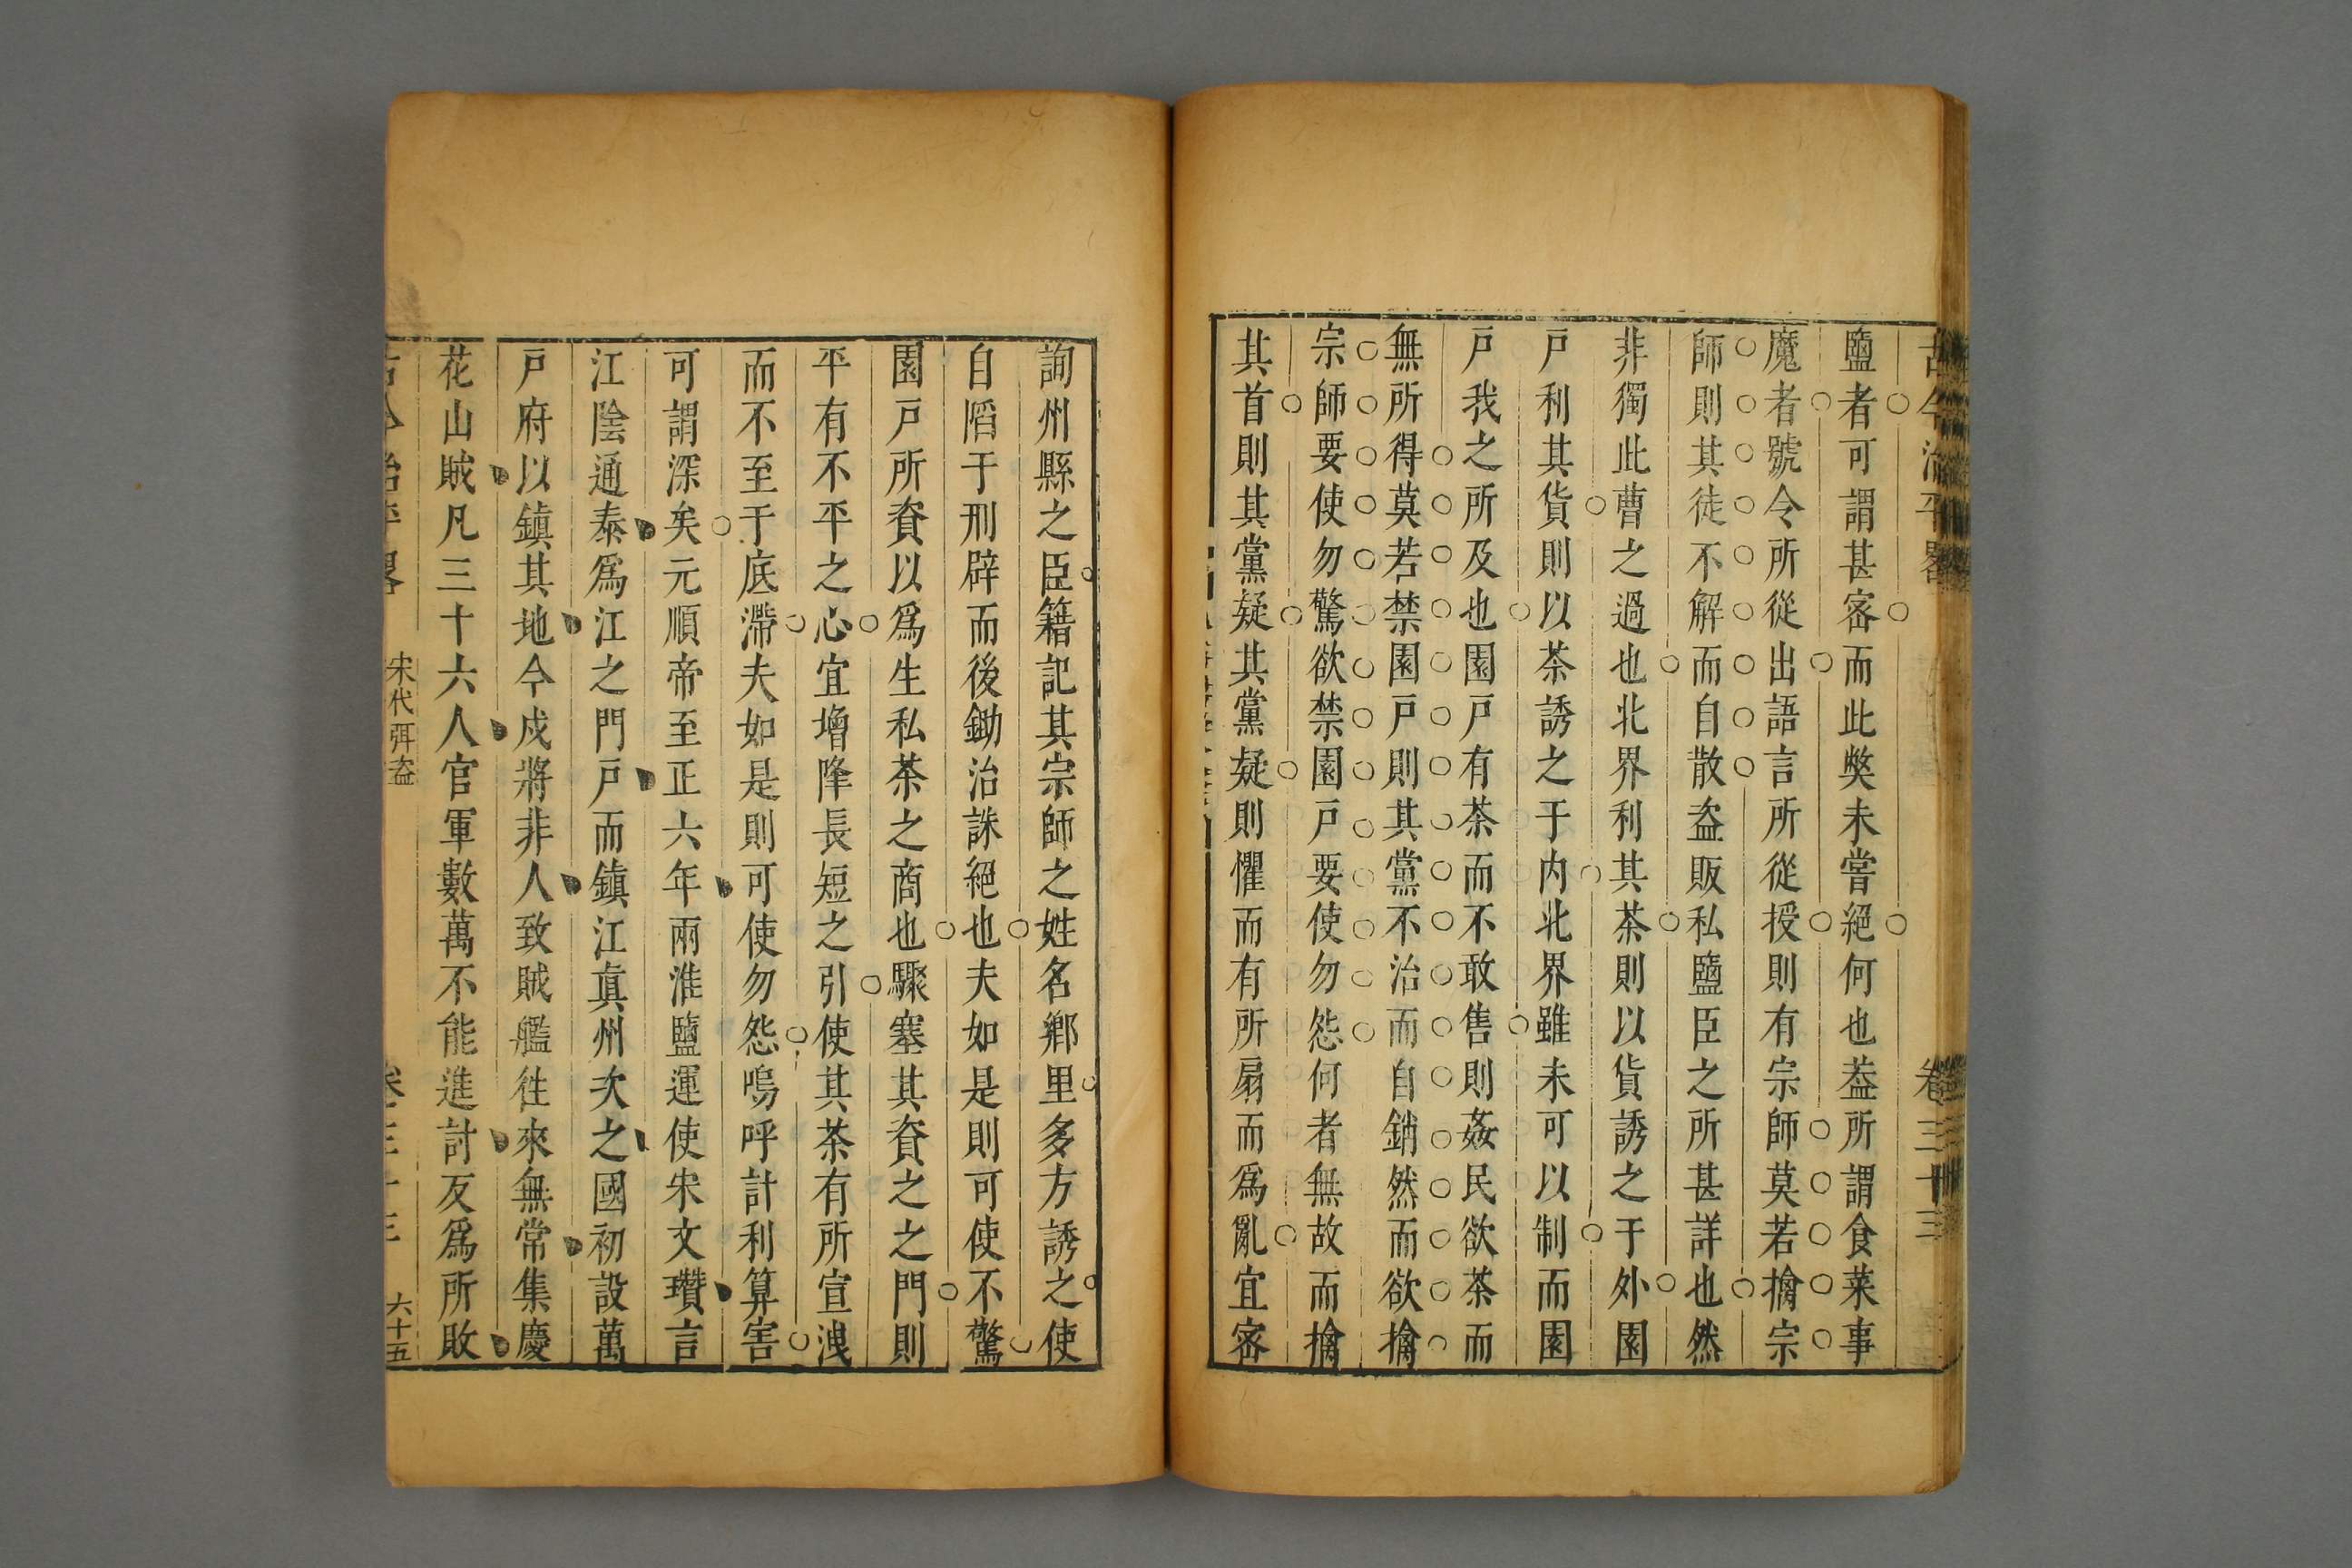 古今治平畧 卷三十三
鹽者可謂甚宻而此獘未嘗絕何也葢所謂食菜事
魔者號令所從出語言所從授則有宗師莫若擒宗
師則其徒不解而自散盗販私鹽臣之所甚詳也然
非獨此曹之過也北界利其茶則以貨誘之于外園
戸利其貨則以茶誘之于内北界雖未可以制而園
戸我之所及也園戸有茶而不敢售則姦民欲茶而
無所得莫若禁園戸則其黨不治而自銷然而欲擒
宗師要使勿驚欲禁園戸要使勿怨何者無故而擒
其首則其黨疑其黨疑則懼而有所扇而爲亂宜宻
詢州縣之臣籍記其宗師之姓名鄕里多方誘之使
自陷于刑辟而後鋤治誅絕也夫如是則可使不驚
園戸所資以爲生私茶之商也驟塞其資之之門則
平有不平之心宜增降長短之引使其茶有所宣洩
而不至于底滯夫如是則可使勿怨嗚呼計利算害
可謂深矣元順帝至正六年兩淮鹽運使宋文瓚言
江陰通泰爲江之門戸而鎮江眞州次之國初設萬
戸府以鎮其地今戍將非人致賊艦徃來無常集慶
花山賊凡三十六人官軍數萬不能進討反爲所敗
古今治平畧 宋代弭盗 卷三十三 六十五